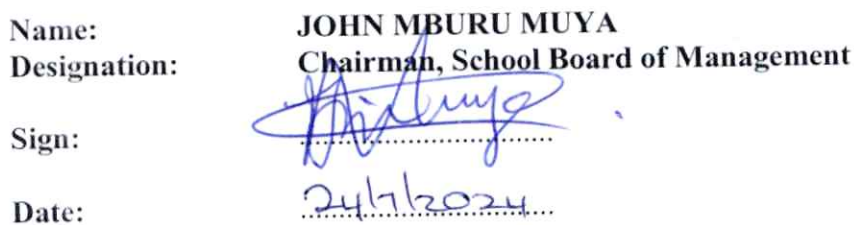 Name: JOHN MBURU MUYA
Designation: Chairman, School Board of Management
Sign:
Date: 24/7/2024